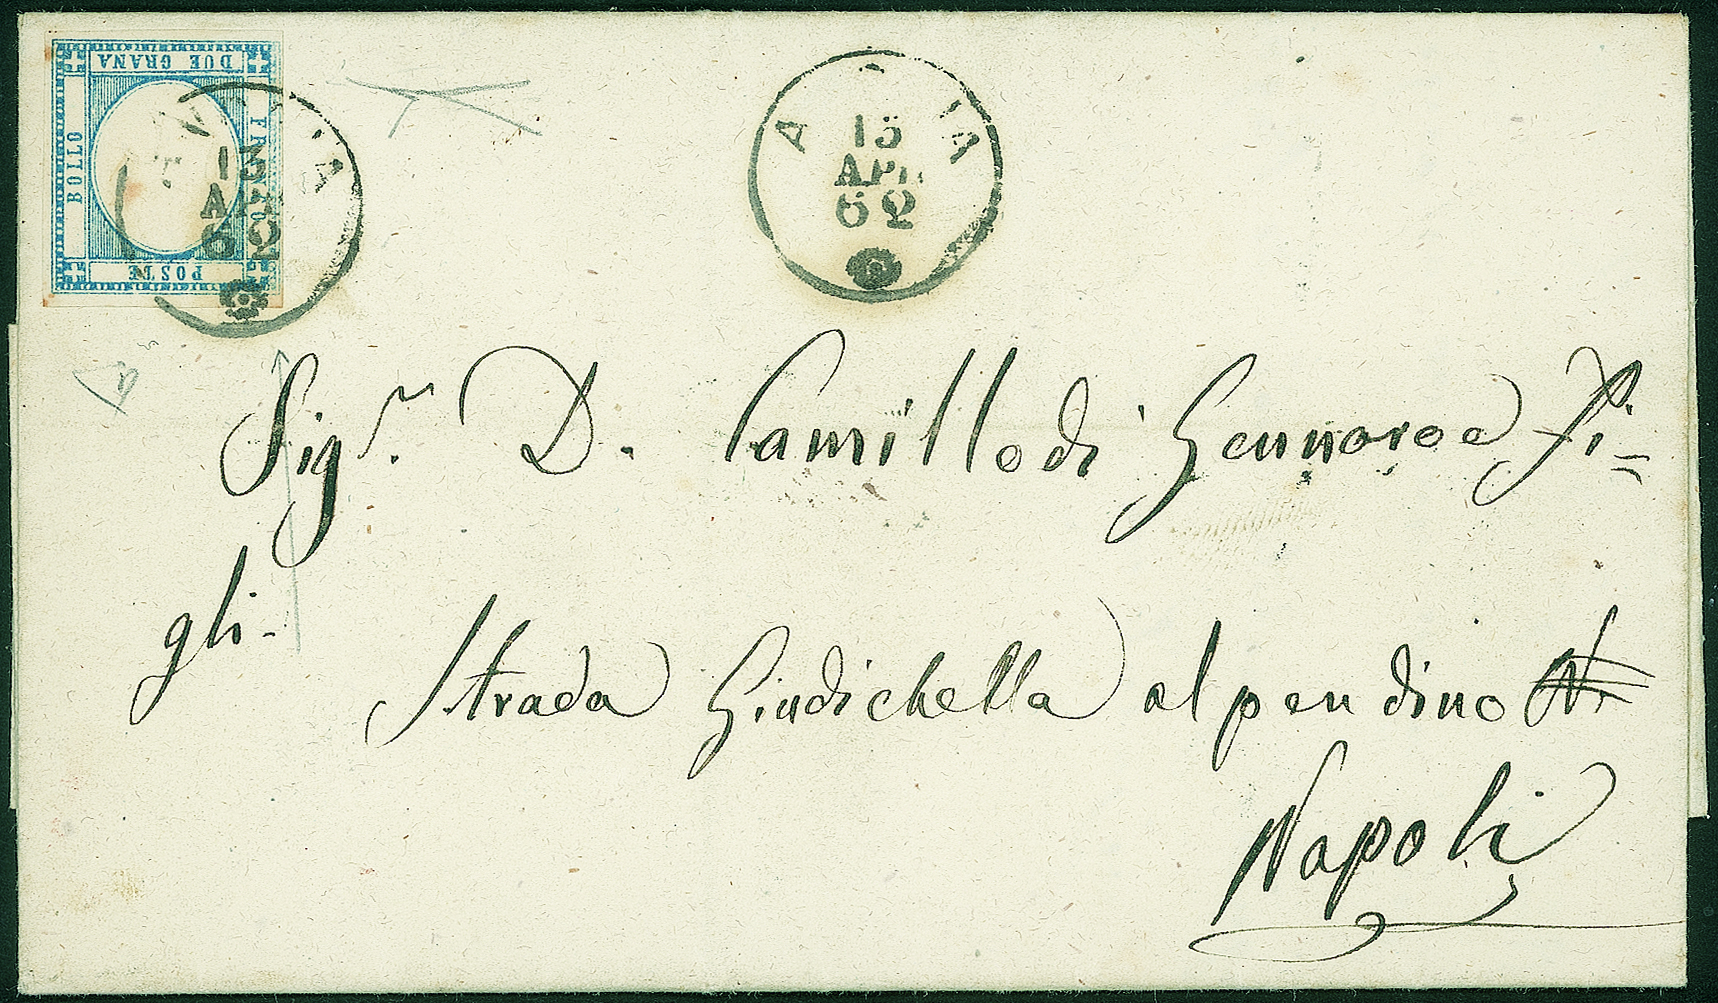 DUE GRANA
BOLLO
POSTE
13
62
A IA
15
APR
62
Sigr. D. Camillo di Gennaro e Fi=
gli-
Strada Giudichella al pendino
Napoli